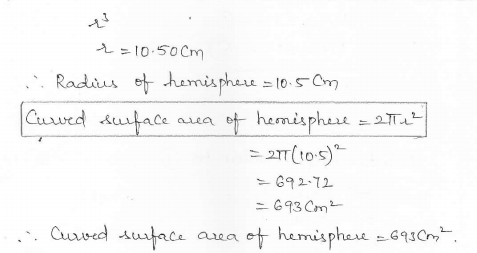 r³
r = 10.50 Cm
∴ Radius of hemisphere = 10.5 Cm
Curved surface area of hemisphere = 2πr²
= 2π(10.5)²
= 692.72
= 693 Cm²
∴ Curved surface area of hemisphere = 693 Cm².